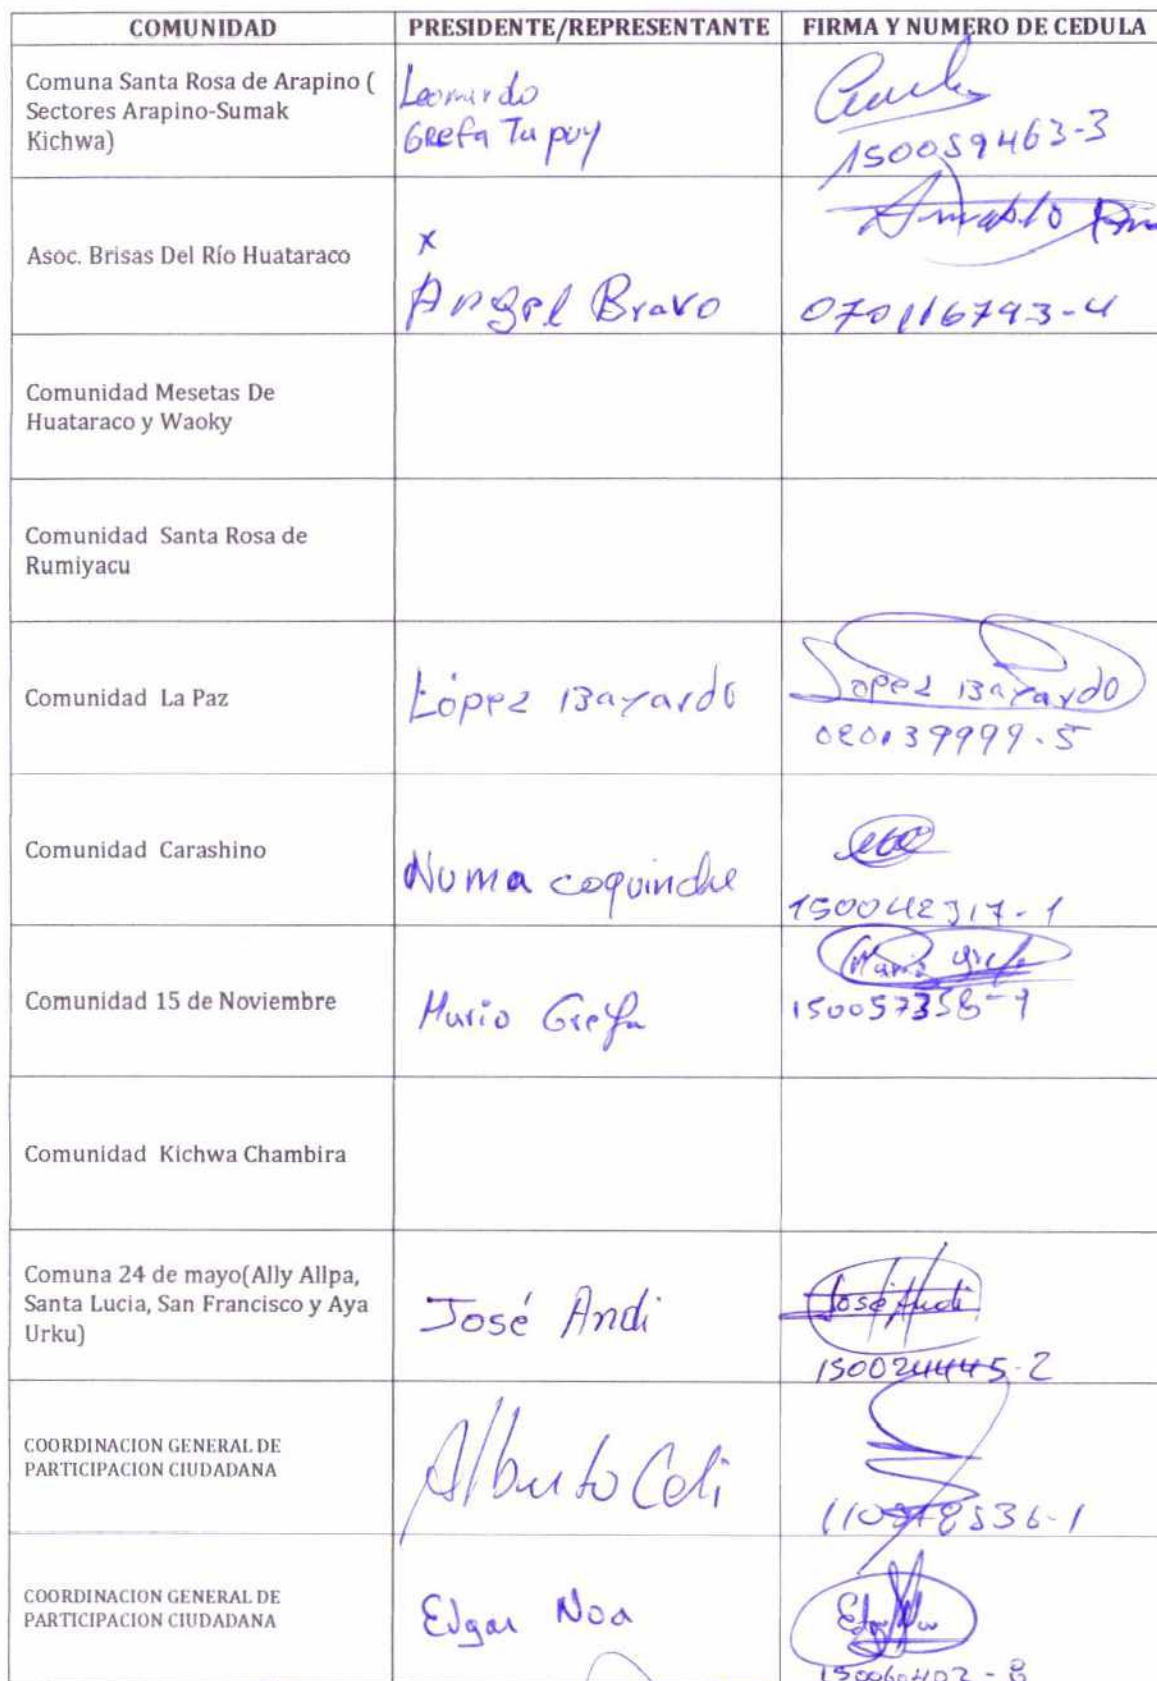 COMUNIDAD PRESIDENTE/REPRESENTANTE FIRMA Y NUMERO DE CEDULA
Comuna Santa Rosa de Arapino (
Sectores Arapino-Sumak
Kichwa)
Leonardo
Grefa Tapuy
150059463-3
Asoc. Brisas Del Río Huataraco
x
Angel Bravo
070116793-4
Comunidad Mesetas De
Huataraco y Waoky
Comunidad Santa Rosa de
Rumiyacu
Comunidad La Paz
López Bayardo
Lopez Bayardo
020139999-5
Comunidad Carashino
Numa coquinche
150042317-1
Comunidad 15 de Noviembre
Mario Grefa
Mario Grefa
Comunidad Kichwa Chambira
Comuna 24 de mayo(Ally Allpa,
Santa Lucia, San Francisco y Aya
Urku)
José Andi
José Andi
150024445-2
COORDINACION GENERAL DE
PARTICIPACION CIUDADANA
Alberto Celi
COORDINACION GENERAL DE
PARTICIPACION CIUDADANA
Edgar Noa
150060402-8